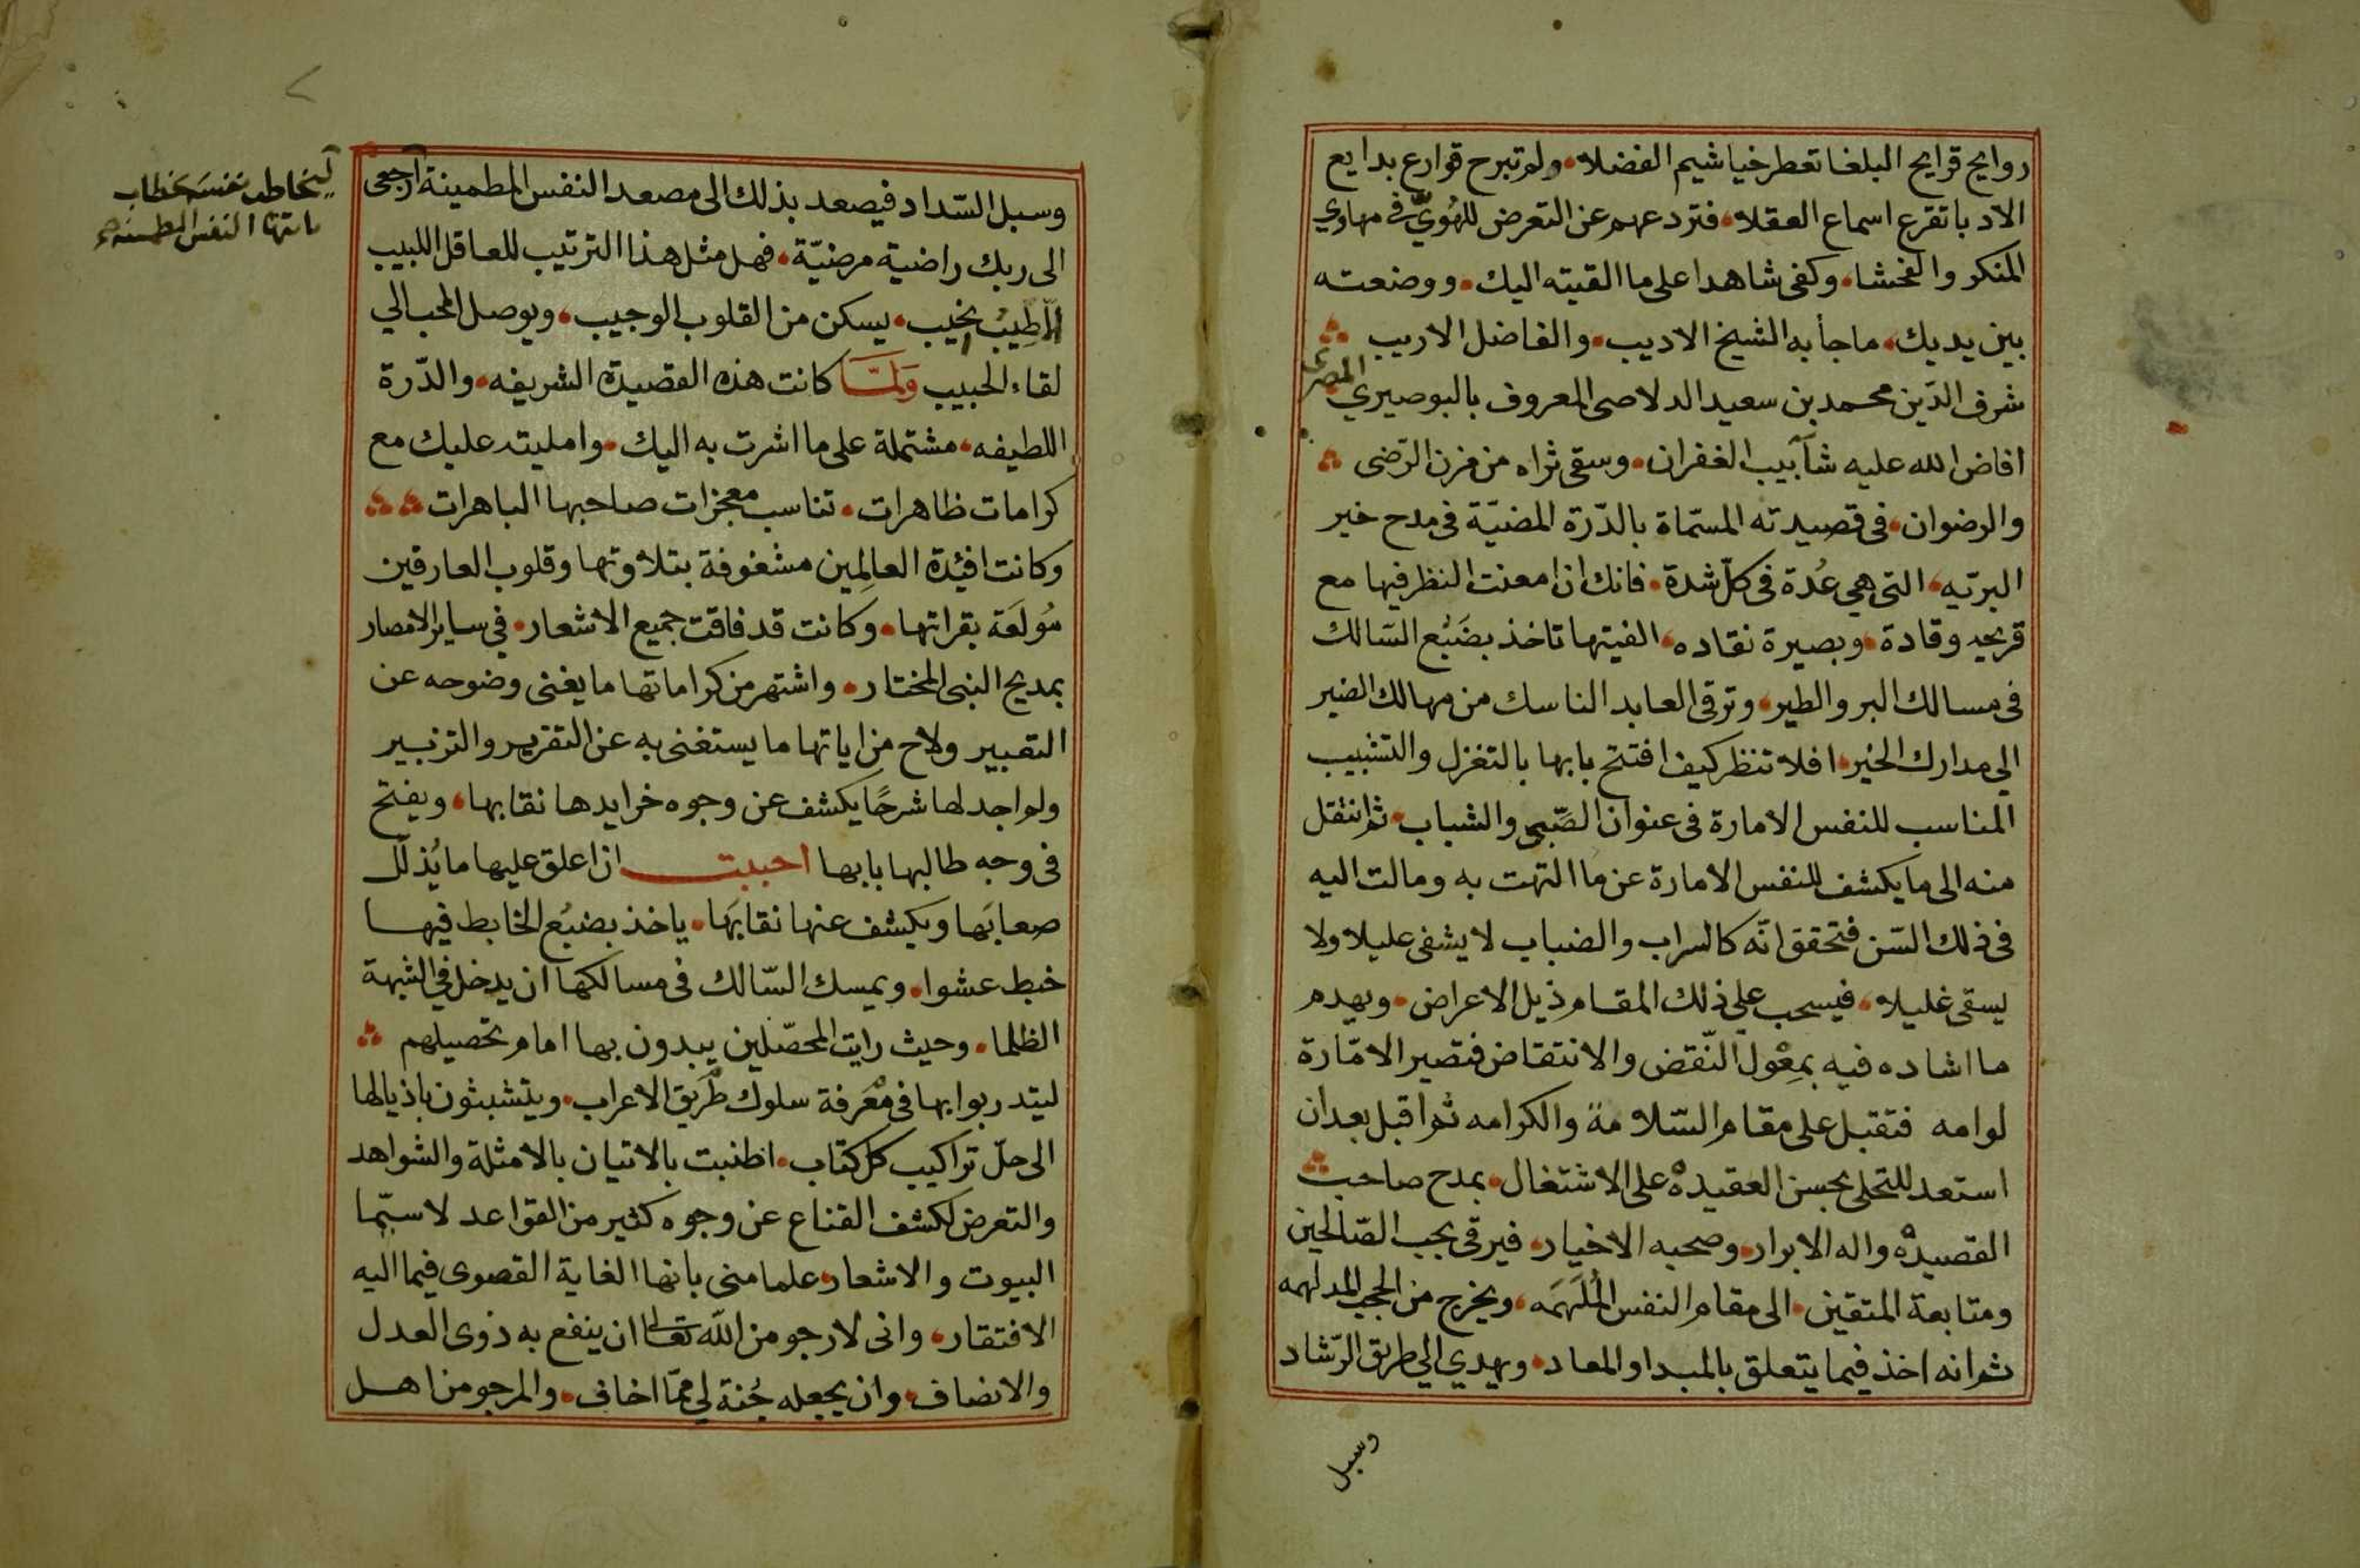 روايح قرايح البلغا تعطر خياشيم الفضلا، ولم تبرح قوارع بدايع
الادبا تقرع اسماع العقلا، فتردعهم عن التعرض للهُويّ في مهاوي
المنكر والفحشا، وكفى شاهدا على ما القيته اليك، ووضعته
بين يديك، ماجأ به الشيخ الاديب، والفاضل الاريب
شرف الدّين محمد بن سعيد الدلاصى المعروف بالبوصيري المصرى
افاض الله عليه شآبيب الغفران، وسقى ثراه من مزن الرّضى
والرضوان، فى قصيدته المسمّاة بالدّرة المضيّة فى مدح خير
البريّه، التى هي عُدة فى كلّ شدة، فانك ان امعنت النظر فيها مع
قريحه وقادة، وبصيرة نقاده، الفيتها تاخذ بضَبْع السّالك
فى مسالك البر والطير، وترقى العابد الناسك من مهالك الضير
الي مدارك الخير، افلا تنظر كيف افتتح بابها بالتغزل والتشبيب
المناسب للنفس الامارة فى عنوان الصِّبى والشباب، ثم انتقل
منه الى ما يكشف للنفس الامارة عن ما التهت به ومالت اليه
فى ذلك السّن فتحقق انّه كالسراب والضباب لا يشفى عليلا ولا
يسقى غليلا، فيسحب علي ذلك المقام ذيل الاعراض، ويهدم
ما اشاده فيه بمِعْول النّقض والانتقاض فتصير الامّارة
لوامه فتقبل على مقام السّلامة والكرامه ثم اقبل بعد ان
استعد للتحلى بحسن العقيدة على الاشتغال، بمدح صاحب
القصيدة واله الابرار، وصحبه الاخيار، فيرقى بحب الصّالحين
ومتابعة المتقين، الى مقام النفس المُلَهَمَه، ويخرج من الحجب المدلهمه
ثم انه اخذ فيما يتعلق بالمبدا والمعاد، ويهدي الي طريق الرّشاد
وسبل
وسبل السّداد فيصعد بذلك الى مصعد النفس المطمينة ارجعى
ليخاطب نفسه خطاب
يا ايتها النفس المطمينة
الى ربك راضية مرضيّة، فهل مثل هذا الترتيب للعاقل اللبيب
طبيبٌ نجيب، يسكن من القلوب الوجيب، ويوصل المحب الي
لقاء الحبيب وَلَمَّا كانت هذه القصيدة الشريفه، والدّرة
اللطيفه، مشتملة على ما اشرت به اليك، وامليته عليك مع
كرامات ظاهرات، تناسب معجزات صاحبها الباهرات
وكانت افئدة العالِمين مشغوفة بتلاوتها وقلوب العارفين
مُولَعَة بقراتها، وكانت قد فاقت جميع الاشعار، في ساير الامصار
بمديح النبى المختار، واشتهر من كراماتها ما يغنى وضوحه عن
التعبير ولاح من اياتها ما يستغنى به عن التقرير والتزبير
ولم اجد لها شرحًا يكشف عن وجوه خرايدها نقابها، ويفتح
فى وجه طالبها بابها احببت ان اعلق عليها ما يُذلّل
صعابَها ويكشف عنها نقابَها، ياخذ بضبْع الخابط فيها
خبط عشوا، ويمسك السّالك فى مسالكها ان يدخل في الشبهة
الظلما، وحيث رايت المحصّلين يبدون بها امام تحصيلهم
ليتدربوا بها فى مَعْرفة سلوك طَريق الاعراب، ويتشبثون باذيالها
الى حلّ تراكيب كل كتاب، اطنبت بالاتيان بالامثلة والشواهد
والتعرض لكشف القناع عن وجوه كثير من القواعد لا سيّما
البيوت والاشعار، علما منى بانها الغاية القصوى فيما اليه
الافتقار، وانى لارجو من الله تعالى ان ينفع به ذوى العدل
والانصاف، وان يجعله جُنة لي ممّا اخاف، والمرجو من اهل